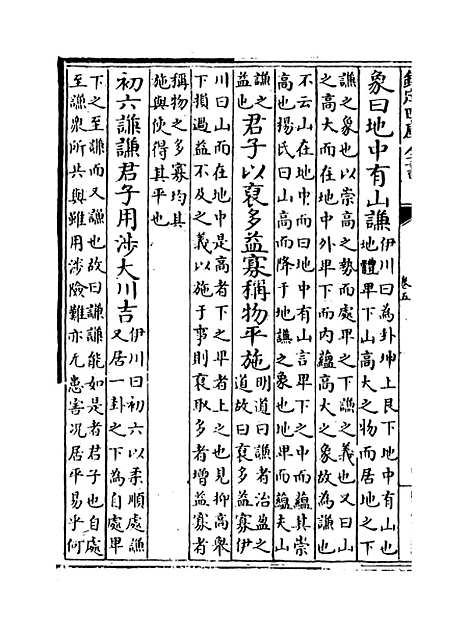 欽定四庫全書
卷五
象曰地中有山謙伊川曰為卦坤上艮下地中有山也
地體卑下山高大之物而居地之下
謙之象也以崇高之勢而處卑之下謙之義也又曰山
之高大而在地中外卑下而內蘊高大之象故為謙也
不云山在地中而曰地中有山言卑下之中而蘊其崇
高也楊氏曰山高而降于地謙之象也地卑而蘊夫山
謙之
益也君子以裒多益寡稱物平施明道曰謙者治盈之
道故曰裒多益寡伊
川曰山而在地中是高者下之卑者上之也見抑高舉
下損過益不及之義以施于事則裒取多者增益寡者
稱物之多寡均其
施與使得其平也
初六謙謙君子用涉大川吉伊川曰初六以柔順處謙
又居一卦之下為自處卑
下之至謙而又謙也故曰謙謙能如是者君子也自處
至謙衆所共與雖用涉險難亦无患害况居平易乎何